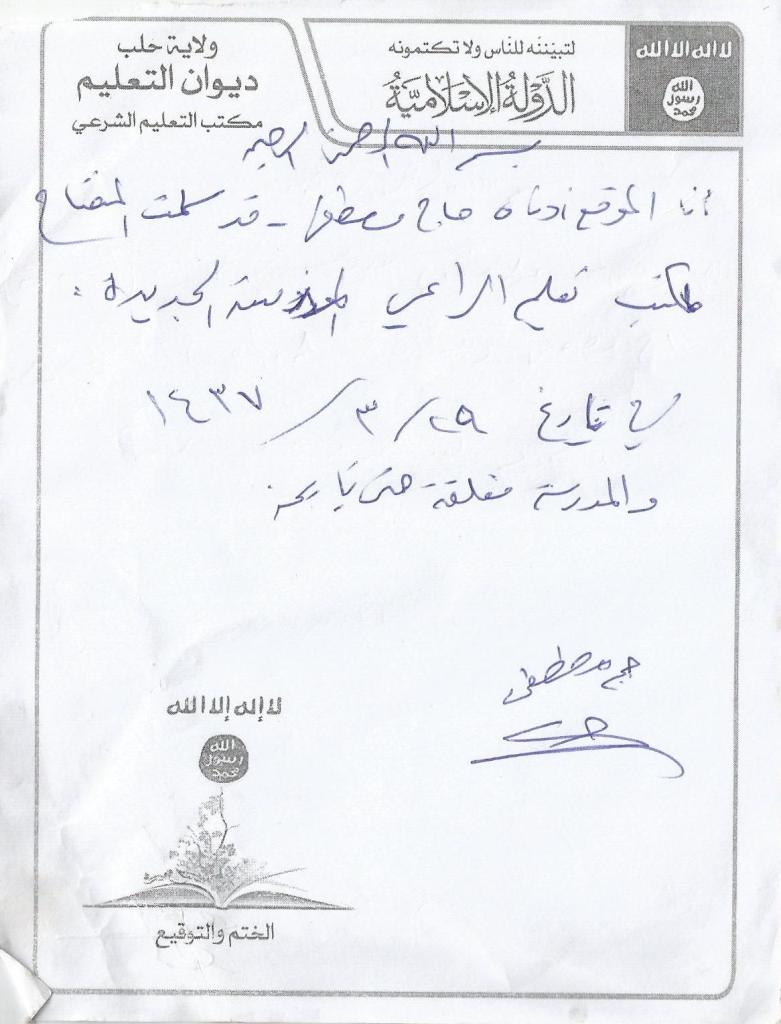 لا إله إلا الله
الله
رسول
محمد
لتبيننه للناس ولا تكتمونه
الدَّوْلَةُ الإِسْلَامِيَّةُ
ولاية حلب
ديوان التعليم
مكتب التعليم الشرعي
بسم الله الرحمن الرحيم
أنا الموقع أدناه حاج مصطفى - قد سلمت المفتاح
مكتب تعليم الراعي المدرسة الجديدة :
في تاريخ ٢٩ / ٣ / ١٤٣٧
والمدرسة مغلقة حتى تاريخه
حج مصطفى
لا إله إلا الله
الله
رسول
محمد
الختم والتوقيع